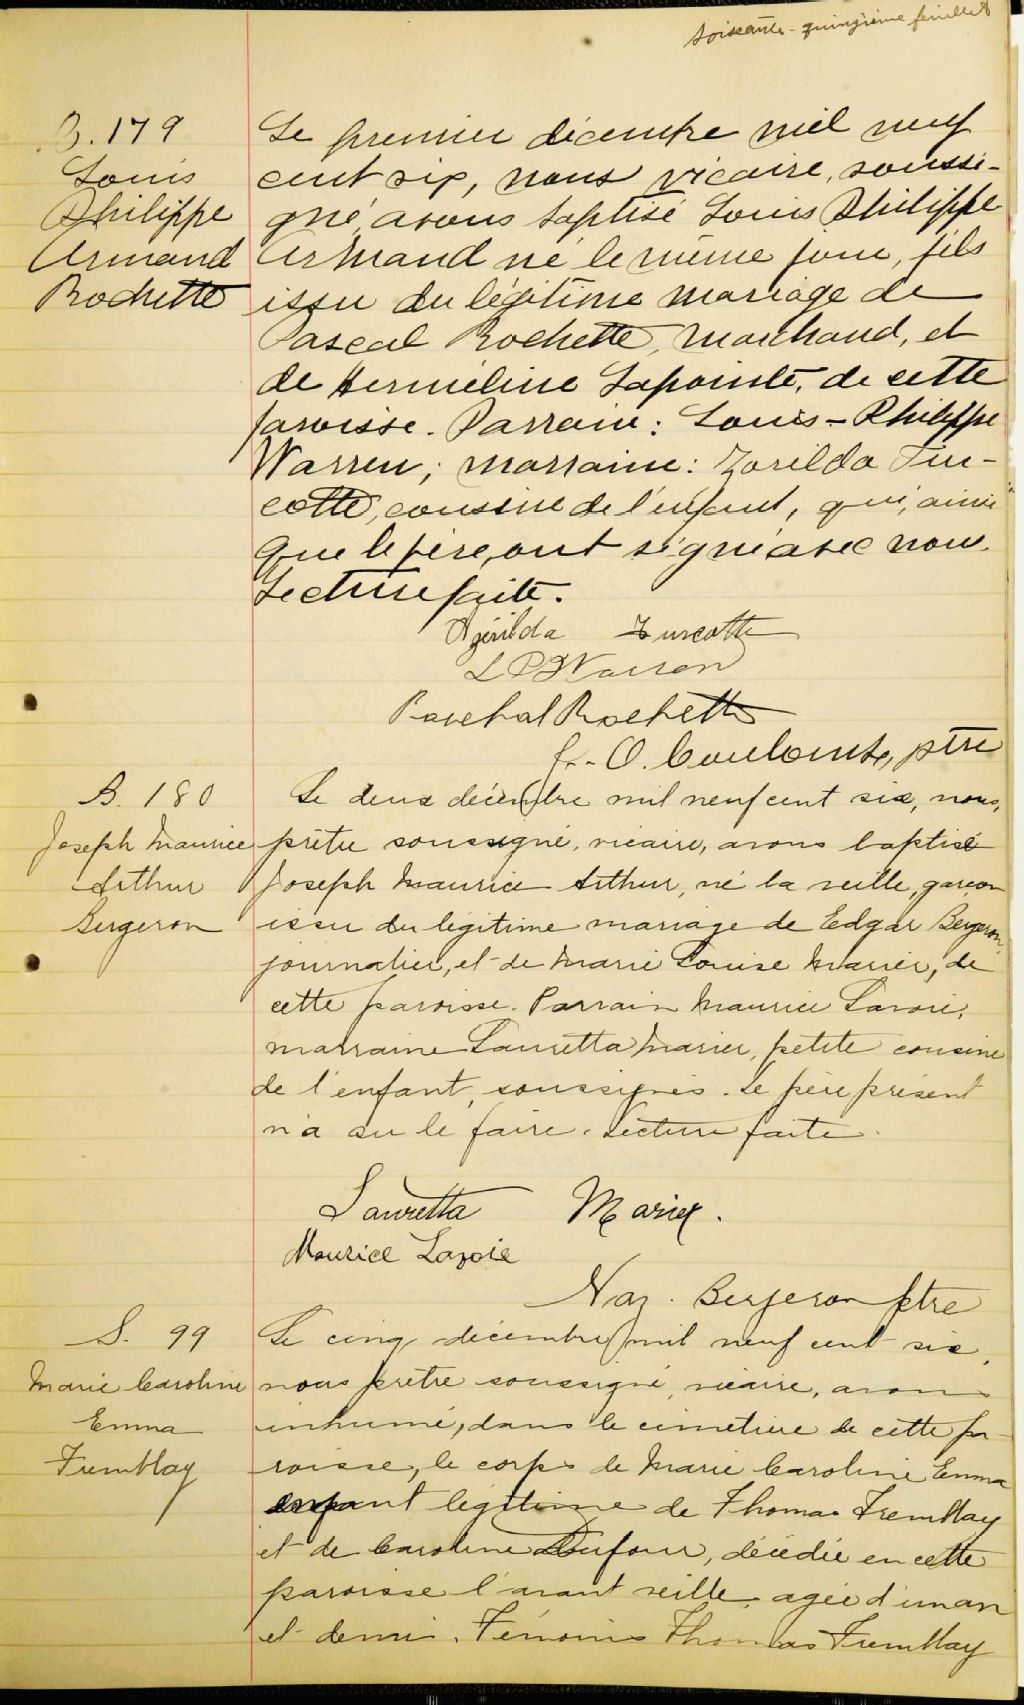 soixante-quinzième feuillet
B. 179
Louis
Philippe
Armand
Rochette
Le premier décembre mil neuf
cent six, nous vicaire, soussi-
gné avons baptisé Louis Philippe
Armand né le même jour, fils
issu du légitime mariage de
Pascal Rochette, marchand, et
de Herméline Lapointe, de cette
paroisse. Parrain: Louis-Philippe
Warren; marraine: Zorilda Tur-
cotte, cousine de l'enfant, qui, ainsi
que le père, ont signé avec nous.
Lecture faite.
Azérilda Turcotte
L P Warren
Paschal Rochette
O. Coulombe, ptre
B. 180
Joseph Maurice
Arthur
Bergeron
Le deux décembre mil neuf cent six, nous,
prêtre soussigné, vicaire, avons baptisé
Joseph Maurice Arthur, né la veille, garçon
issu du légitime mariage de Edgar Bergeron,
journalier, et de Marie Louise Marier, de
cette paroisse. Parrain Maurice Lavoie,
marraine Lauretta Marier, petite cousine
de l'enfant, soussignés. Le père présent
n'a su le faire. Lecture faite.
Lauretta Marier.
Maurice Lavoie
Naz. Bergeron ptre
S. 99
Marie Caroline
Emma
Tremblay
Le cinq décembre mil neuf cent six,
nous prêtre soussigné, vicaire, avons
inhumé, dans le cimetière de cette pa-
roisse, le corps de Marie Caroline Emma
enfant légitime de Thomas Tremblay
et de Caroline Dufour, décédée en cette
paroisse l'avant veille, agée d'un an
et demi. Témoins Thomas Tremblay